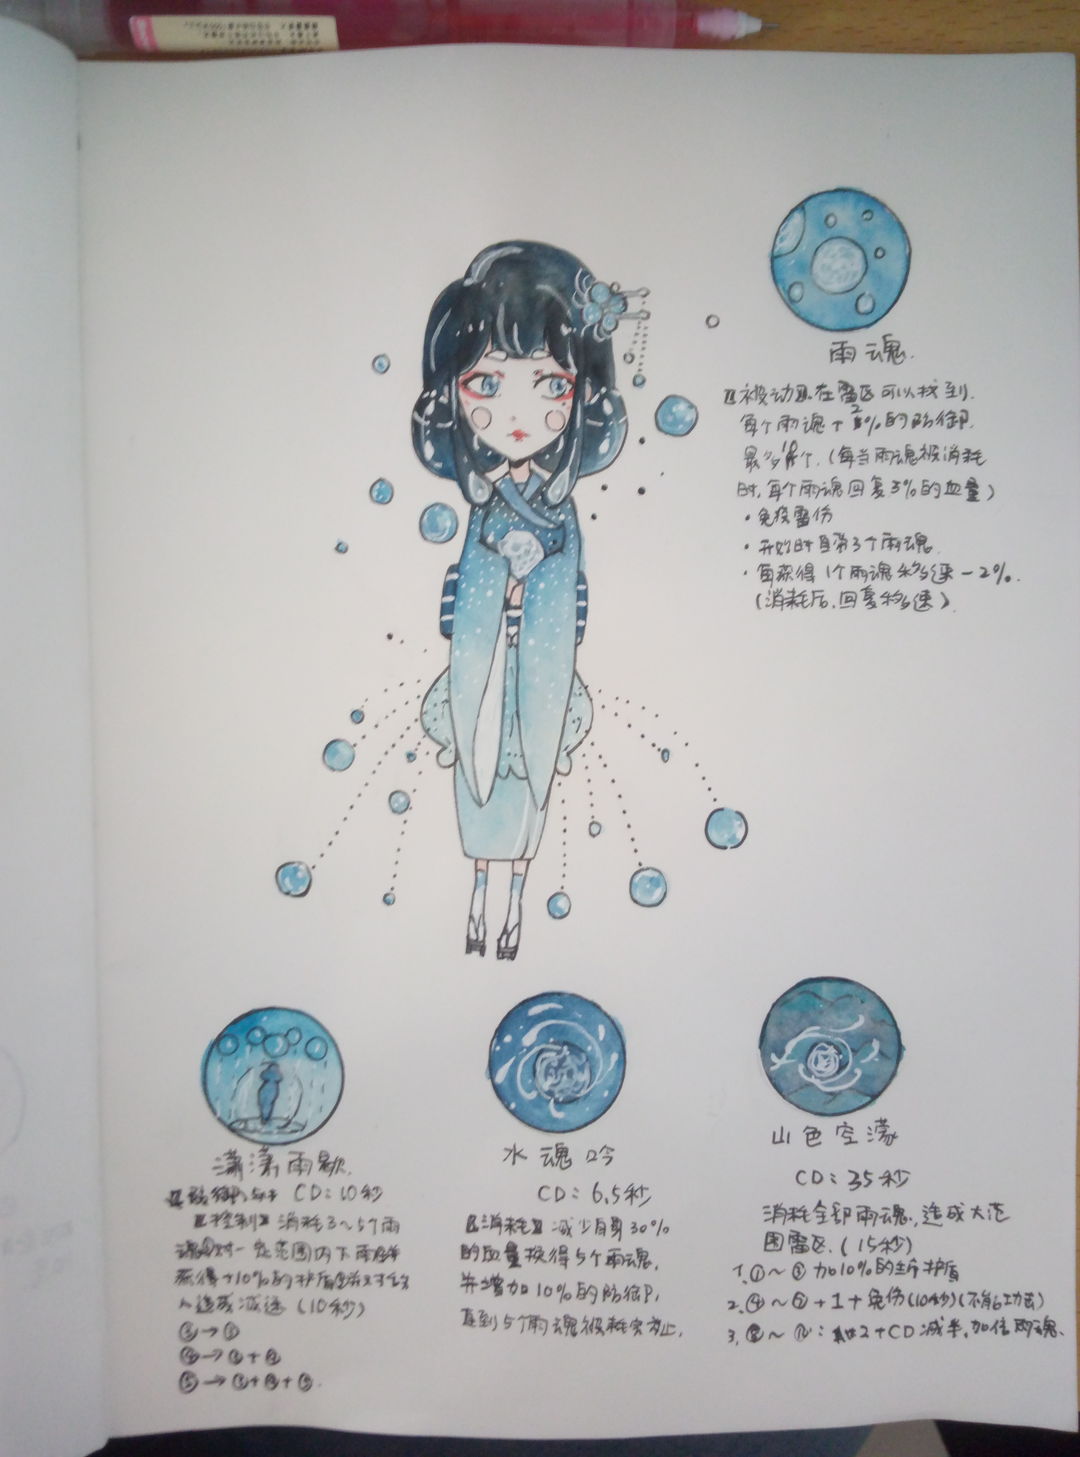 雨魂.
【被动】.在雷区可以找到.
每个雨魂+2%的防御.
最多个.(每当雨魂被消耗
时,每个雨魂回复3%的血量)
·免疫雷伤
·开始时自带3个雨魂.
·每获得1个雨魂移速-2%.
(消耗后,回复移速).
潇潇雨歇.
CD:10秒
【控制】消耗3~5个雨
魂对一定范围内下雨
获得+10%的护盾
造成减速(10秒)
水魂吟
CD:6.5秒
【消耗】减少自身30%
的血量换得5个雨魂,
并增加10%的防御,
直到5个雨魂被耗完为止.
山色空濛
CD:35秒
消耗全部雨魂,造成大范
围雷区.(15秒)
1.①~③加10%的护盾
2.④~⑦+1+免伤(10秒)(不能攻击)
3.2+CD减半,加倍雨魂.